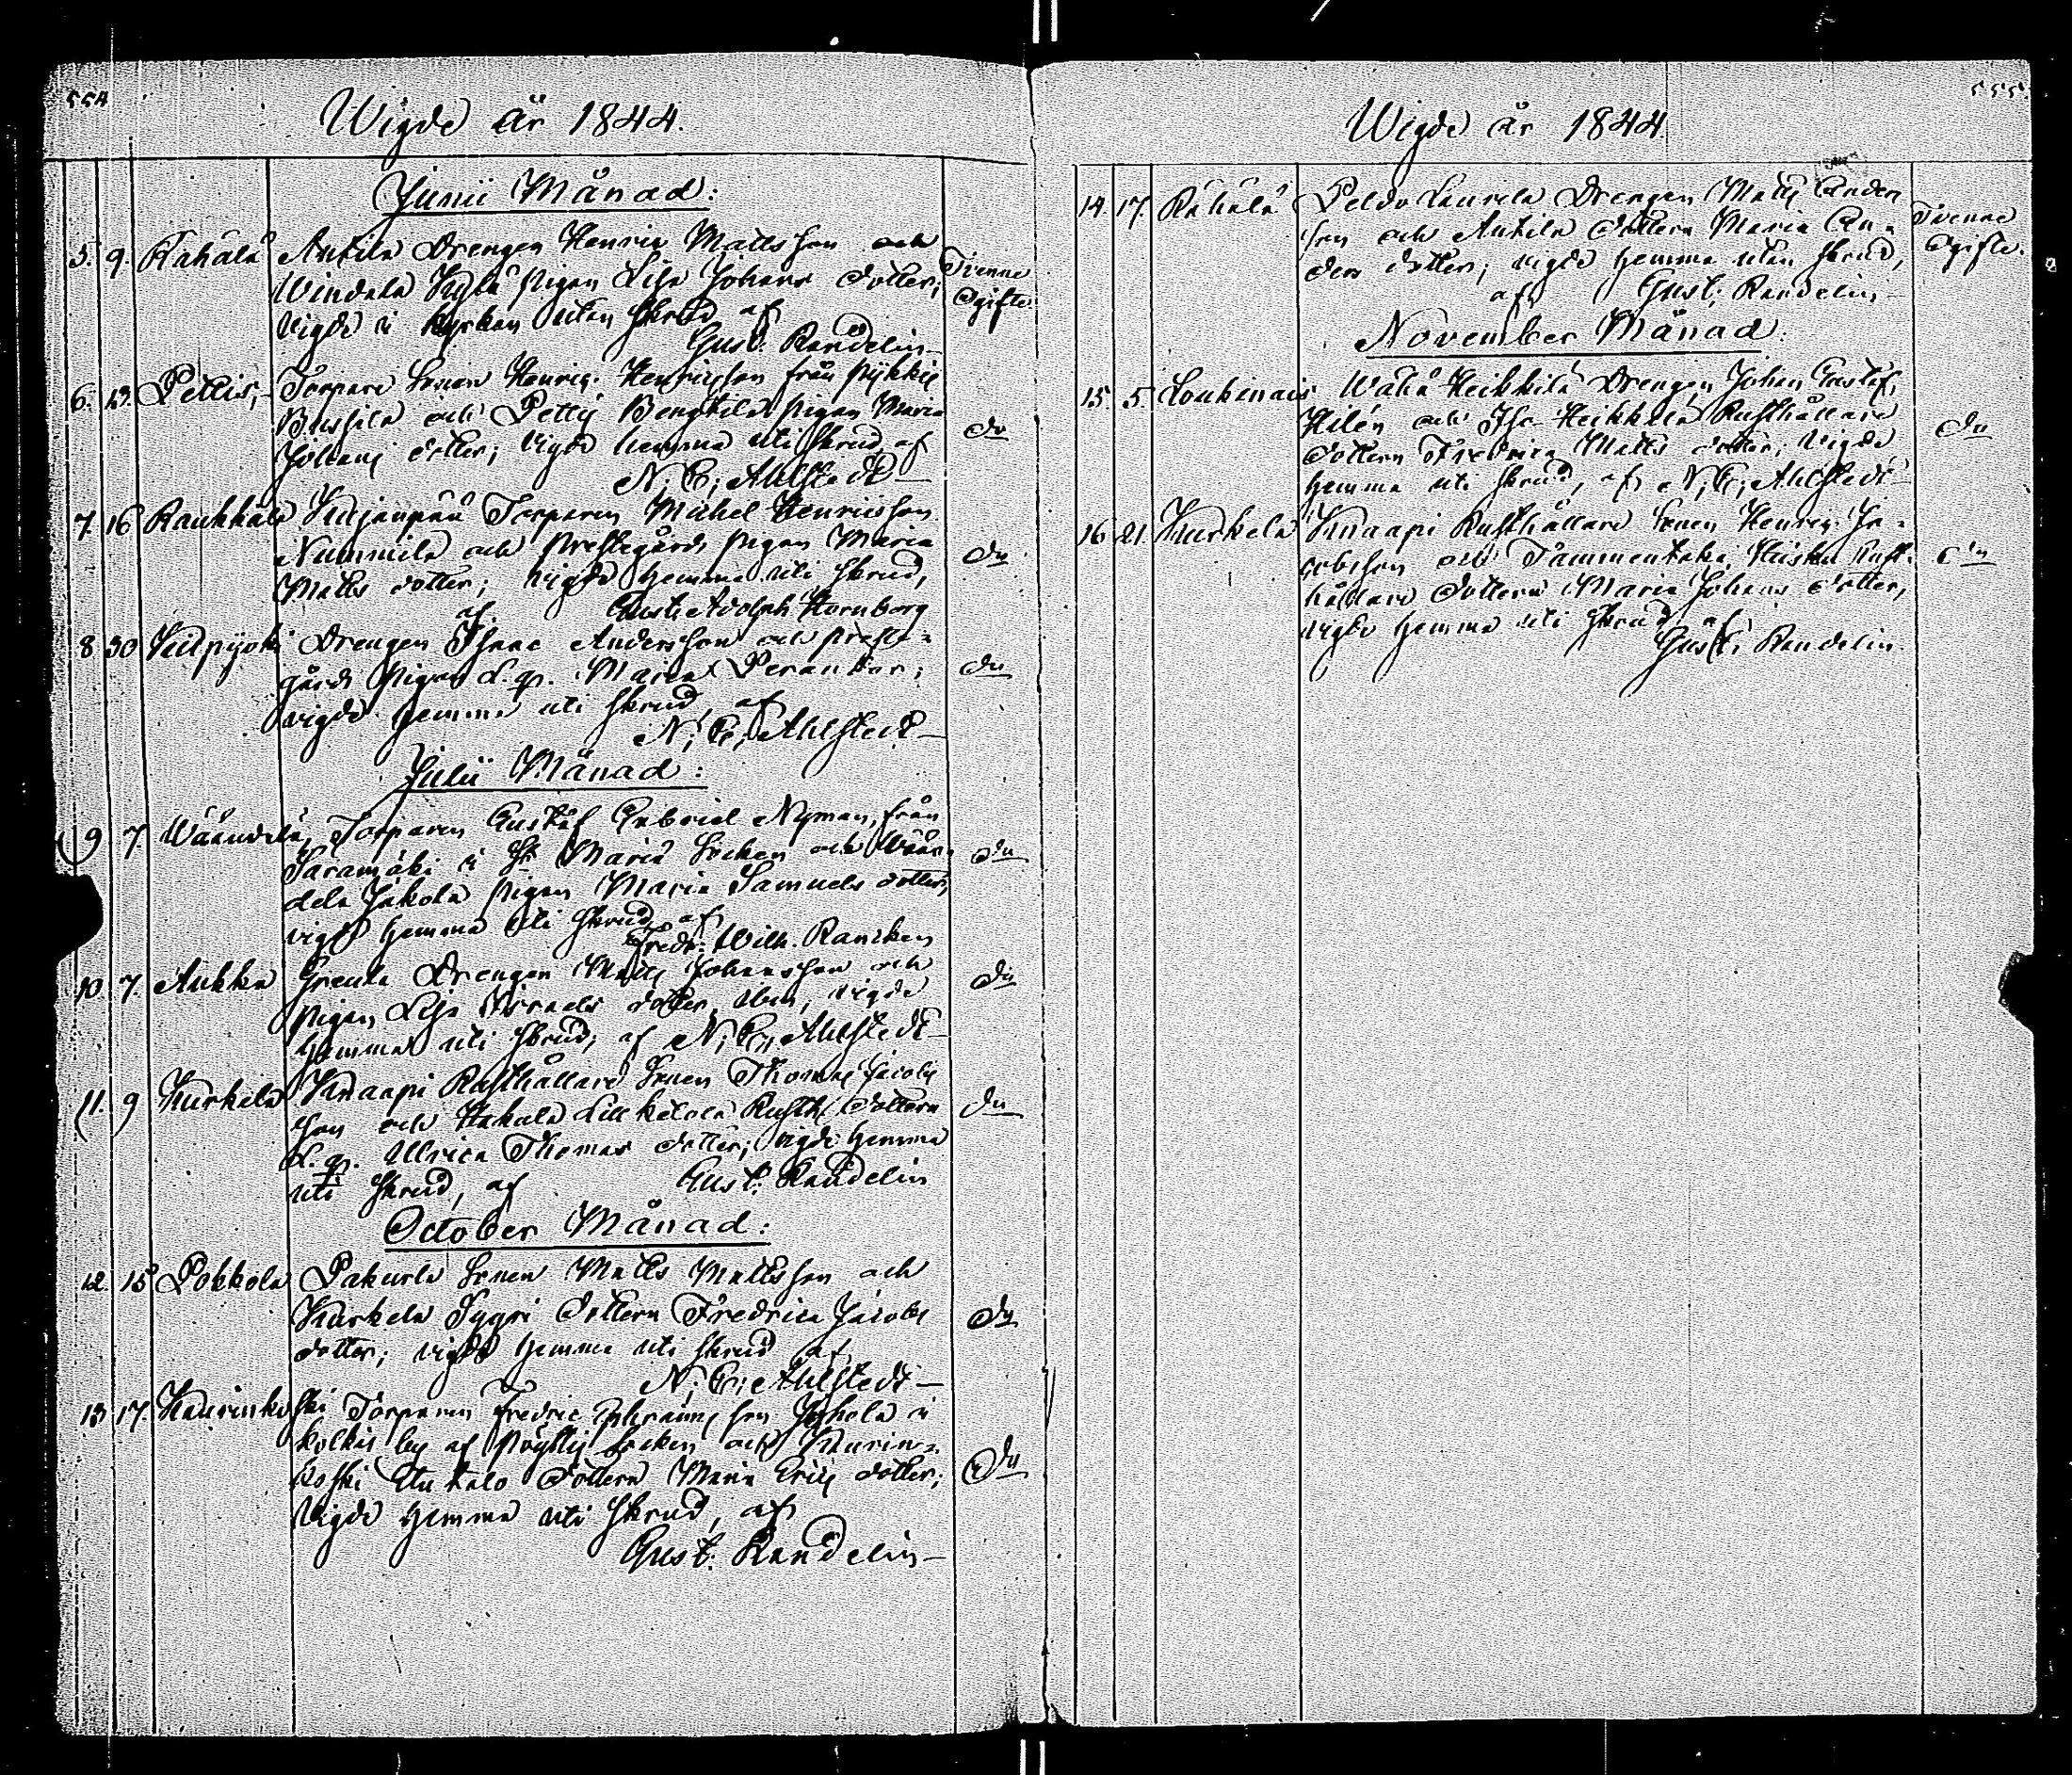 554
Wigde år 1844.
Junii Månad:
5. 9. Rahala Antila Drengen Henric Mattsson och
Windala Kylä pigan Lisa Johans dotter;
Tvenne
Ogifte.
vigde i kyrkan utan skrud af
Gust: Randelin
6. 13. Pettis, Torpare Sonen Henric Henricsson från
och Pettis Bengtila pigan Maria
do
dotter; vigde hemma uti skrud af
N; E; Ahlstedt
7. 16 Raukkala Torparen Michel Henricsson
Nummila och Prestegårds pigan Maria
do
Matts dotter; vigde hemma uti skrud,
af Gust: Adolph Hornborg
8 30 Drengen Isaac Andersson och preste-
gårds pigan d. q. Maria
do
vigde hemma uti skrud, af
N; E; Ahlstedt
Julii Månad:
9 7. Wäändelä, Torparen Gustaf Gabriel Nyman, från
Saramäki i St Mariä Socken och Wään-
do
dela Jakola pigan Maria Samuels dotter;
vigde hemma uti skrud af
Fredr: Wilh. Rancken
10. 7. Aukka Drengen Matts Johansson och
do
pigan Lisa dotter vigde
hemma uti skrud, af N; E; Ahlstedt
11. 9 Kurkela Knaapi Rusthållare Sonen Thomas Jacobs
son och Rusth: dottern
do
d. q. Ulrica Thomas dotter; vigde hemma
uti skrud, af Gust: Randelin
October Månad:
12. 15 Pokkola Pakurla Sonen Matts Mattsson och
Kurkela Sygri dottern Fredrica Jacobs
do
dotter; vigde hemma uti skrud af
N; E; Ahlstedt
13 17. Kaurinkoski Torparen Fredric son i
Kolkis by af Pöytis Socken och Kaurin-
koski dottern Maria Erics dotter;
do
vigde hemma uti skrud, af
Gust: Randelin
555.
Wigde år 1844
14. 17. Rahala Peldo Laurela Drengen Matts Anders
Tvenne
Ogifte.
son och Antila dottern Maria An-
ders dotter; vigde hemma utan skrud,
af Gust: Randelin
November Månad:
15. 5. Loukinais Wähä Heikkilä Drengen Johan Gustaf
Hilén och Iso-Heikkilä Rusthållare
do
dottern Fredrica Matts dotter; vigde
hemma uti skrud, af N; E; Ahlstedt
16 21. Kurkela Knaapi Rusthållare Sonen Henric Ja-
cobsson och Tammentaka Rust-
do
hållare dottern Maria Johans dotter,
vigde hemma uti skrud af
Gust: Randelin